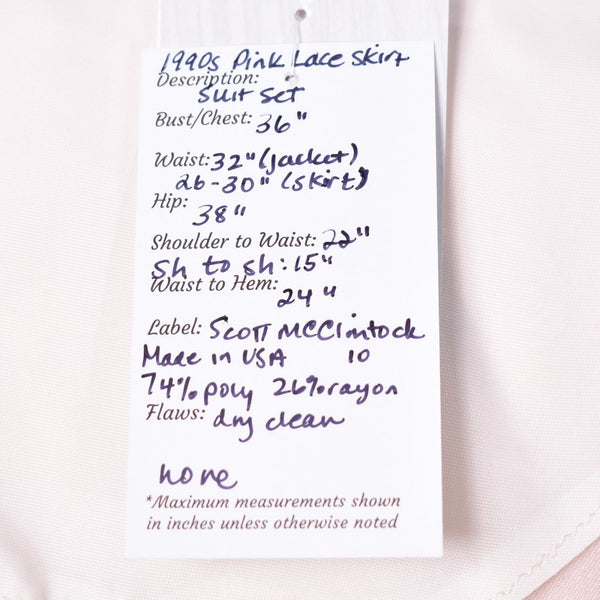 1990s Pink Lace Skirt
Description:
Suit Set
Bust/Chest: 36"
Waist: 32" (jacket)
26-30" (skirt)
Hip:
38"
Shoulder to Waist: 22"
Sh to sh: 15"
Waist to Hem:
24"
Label: Scott McClintock
Made in USA 10
74% poly 26% rayon
Flaws: dry clean
none
*Maximum measurements shown
in inches unless otherwise noted